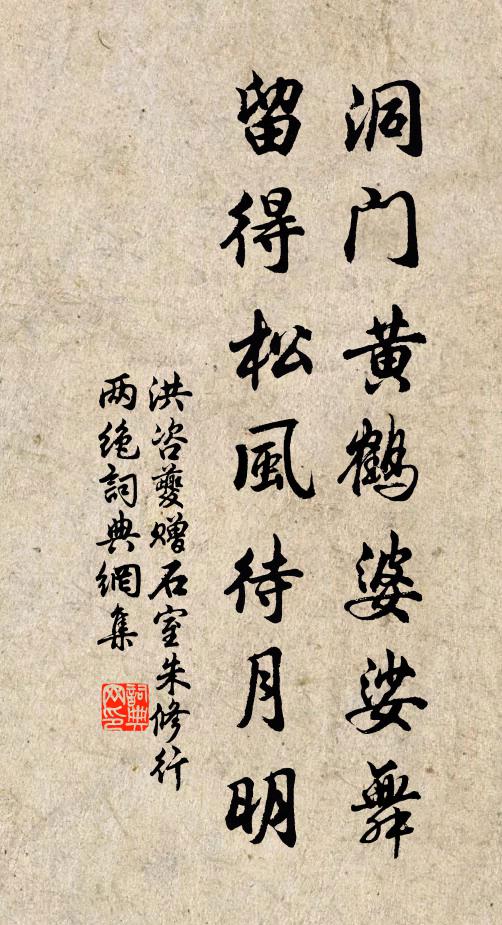 洞门黄鹤婆娑舞
留得松風待月明
洪咨夔赠石室朱修行
两绝詞典網集
詞典网印